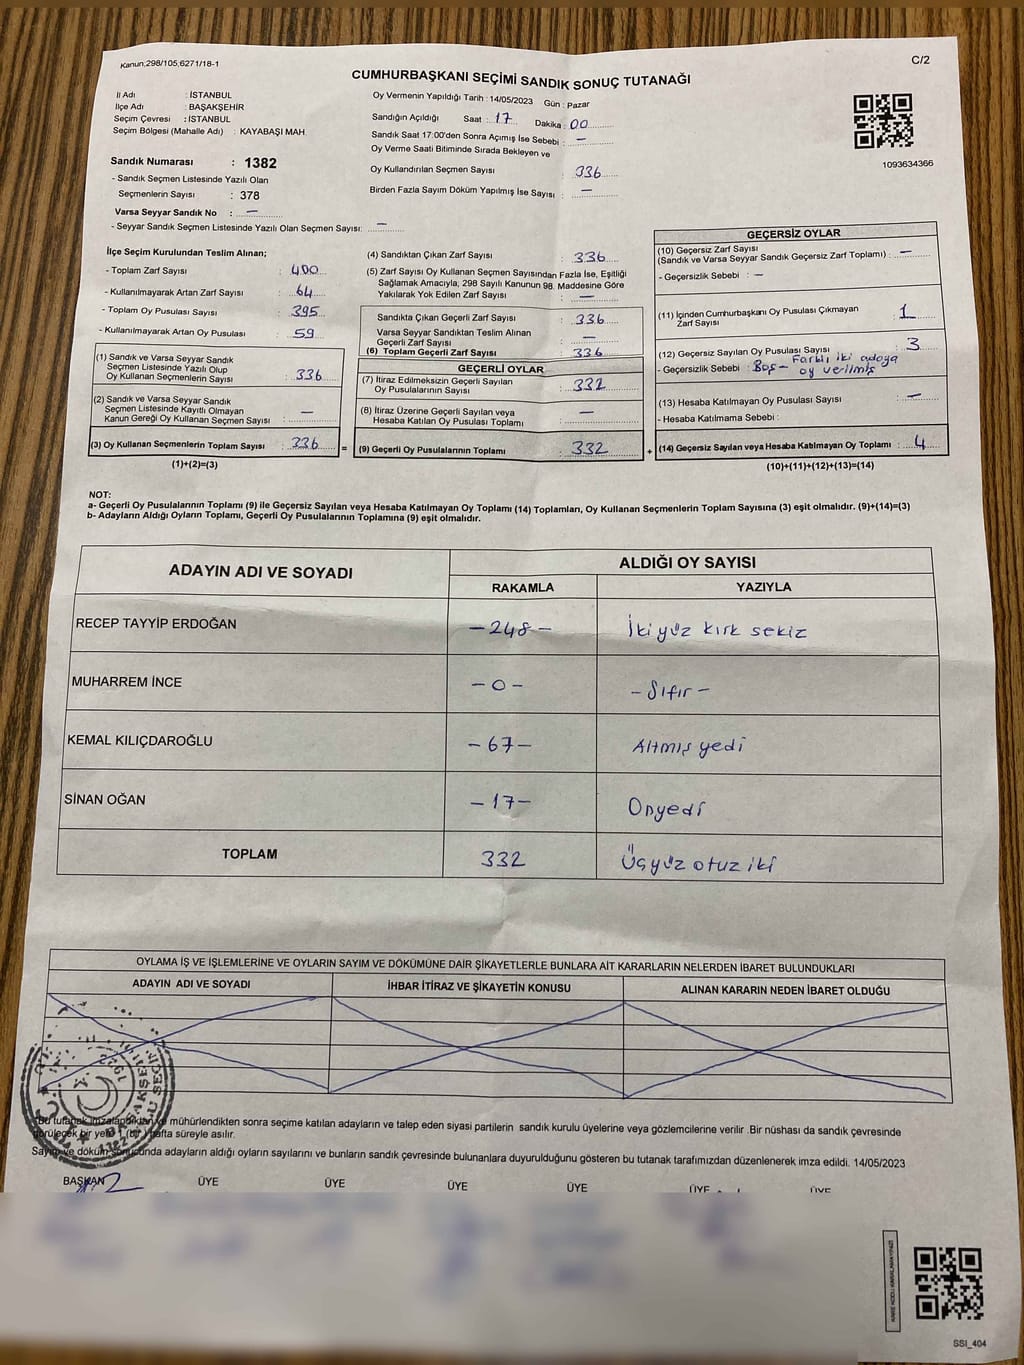 Kanun;298/105;6271/18-1
C/2
CUMHURBAŞKANI SEÇİMİ SANDIK SONUÇ TUTANAĞI
İl Adı : İSTANBUL
İlçe Adı : BAŞAKŞEHİR
Seçim Çevresi : İSTANBUL
Seçim Bölgesi (Mahalle Adı) : KAYABAŞI MAH.
Sandık Numarası : 1382
- Sandık Seçmen Listesinde Yazılı Olan
Seçmenlerin Sayısı : 378
Varsa Seyyar Sandık No : —
- Seyyar Sandık Seçmen Listesinde Yazılı Olan Seçmen Sayısı: —
Oy Vermenin Yapıldığı Tarih : 14/05/2023 Gün : Pazar
Sandığın Açıldığı Saat : 17 Dakika : 00
Sandık Saat 17:00'den Sonra Açımış İse Sebebi : —
Oy Verme Saati Bitiminde Sırada Bekleyen ve
Oy Kullandırılan Seçmen Sayısı : 336
Birden Fazla Sayım Döküm Yapılmış İse Sayısı : —
1093634366
İlçe Seçim Kurulundan Teslim Alınan;
- Toplam Zarf Sayısı : 400
- Kullanılmayarak Artan Zarf Sayısı : 64
- Toplam Oy Pusulası Sayısı : 395
- Kullanılmayarak Artan Oy Pusulası : 59
(1) Sandık ve Varsa Seyyar Sandık
Seçmen Listesinde Yazılı Olup
Oy Kullanan Seçmenlerin Sayısı : 336
(2) Sandık ve Varsa Seyyar Sandık
Seçmen Listesinde Kayıtlı Olmayan
Kanun Gereği Oy Kullanan Seçmen Sayısı : —
(3) Oy Kullanan Seçmenlerin Toplam Sayısı : 336 =
(1)+(2)=(3)
(4) Sandıktan Çıkan Zarf Sayısı : 336
(5) Zarf Sayısı Oy Kullanan Seçmen Sayısından Fazla İse, Eşitliği
Sağlamak Amacıyla; 298 Sayılı Kanunun 98. Maddesine Göre
Yakılarak Yok Edilen Zarf Sayısı : —
Sandıkta Çıkan Geçerli Zarf Sayısı : 336
Varsa Seyyar Sandıktan Teslim Alınan
Geçerli Zarf Sayısı : —
(6) Toplam Geçerli Zarf Sayısı : 336
GEÇERLİ OYLAR
(7) İtiraz Edilmeksizin Geçerli Sayılan
Oy Pusulasının Sayısı : 332
(8) İtiraz Üzerine Geçerli Sayılan veya
Hesaba Katılan Oy Pusulası Toplamı : —
(9) Geçerli Oy Pusulalarının Toplamı : 332 +
GEÇERSİZ OYLAR
(10) Geçersiz Zarf Sayısı
(Sandık ve Varsa Seyyar Sandık Geçersiz Zarf Toplamı) : —
- Geçersizlik Sebebi : —
(11) İçinden Cumhurbaşkanı Oy Pusulası Çıkmayan
Zarf Sayısı : 1
(12) Geçersiz Sayılan Oy Pusulası Sayısı : 3
- Geçersizlik Sebebi : Boş — Farklı iki adaya
oy verilmiş
(13) Hesaba Katılmayan Oy Pusulası Sayısı : —
- Hesaba Katılmama Sebebi :
(14) Geçersiz Sayılan veya Hesaba Katılmayan Oy Toplamı : 4
(10)+(11)+(12)+(13)=(14)
NOT:
a- Geçerli Oy Pusulalarının Toplamı (9) ile Geçersiz Sayılan veya Hesaba Katılmayan Oy Toplamı (14) Toplamları, Oy Kullanan Seçmenlerin Toplam Sayısına (3) eşit olmalıdır. (9)+(14)=(3)
b- Adayların Aldığı Oyların Toplamı, Geçerli Oy Pusulalarının Toplamına (9) eşit olmalıdır.
ADAYIN ADI VE SOYADI ALDIĞI OY SAYISI
RAKAMLA YAZIYLA
RECEP TAYYİP ERDOĞAN -248- İki yüz kırk sekiz
MUHARREM İNCE -0- -Sıfır-
KEMAL KILIÇDAROĞLU -67- Altmış yedi
SİNAN OĞAN -17- Onyedi
TOPLAM 332 Üçyüz otuz iki
OYLAMA İŞ VE İŞLEMLERİNE VE OYLARIN SAYIM VE DÖKÜMÜNE DAİR ŞİKAYETLERLE BUNLARA AİT KARARLARIN NELERDEN İBARET BULUNDUKLARI
ADAYIN ADI VE SOYADI İHBAR İTİRAZ VE ŞİKAYETİN KONUSU ALINAN KARARIN NEDEN İBARET OLDUĞU
Bu tutanak imzalandıktan ve mühürlendikten sonra seçime katılan adayların ve talep eden siyasi partilerin sandık kurulu üyelerine veya gözlemcilerine verilir .Bir nüshası da sandık çevresinde
görülecek bir yere 1 (bir) hafta süreyle asılır.
Sayım ve döküm sonucunda adayların aldığı oyların sayılarını ve bunların sandık çevresinde bulunanlara duyurulduğunu gösteren bu tutanak tarafımızdan düzenlenerek imza edildi. 14/05/2023
BAŞKAN ÜYE ÜYE ÜYE ÜYE ÜYE ÜYE
SSI_404